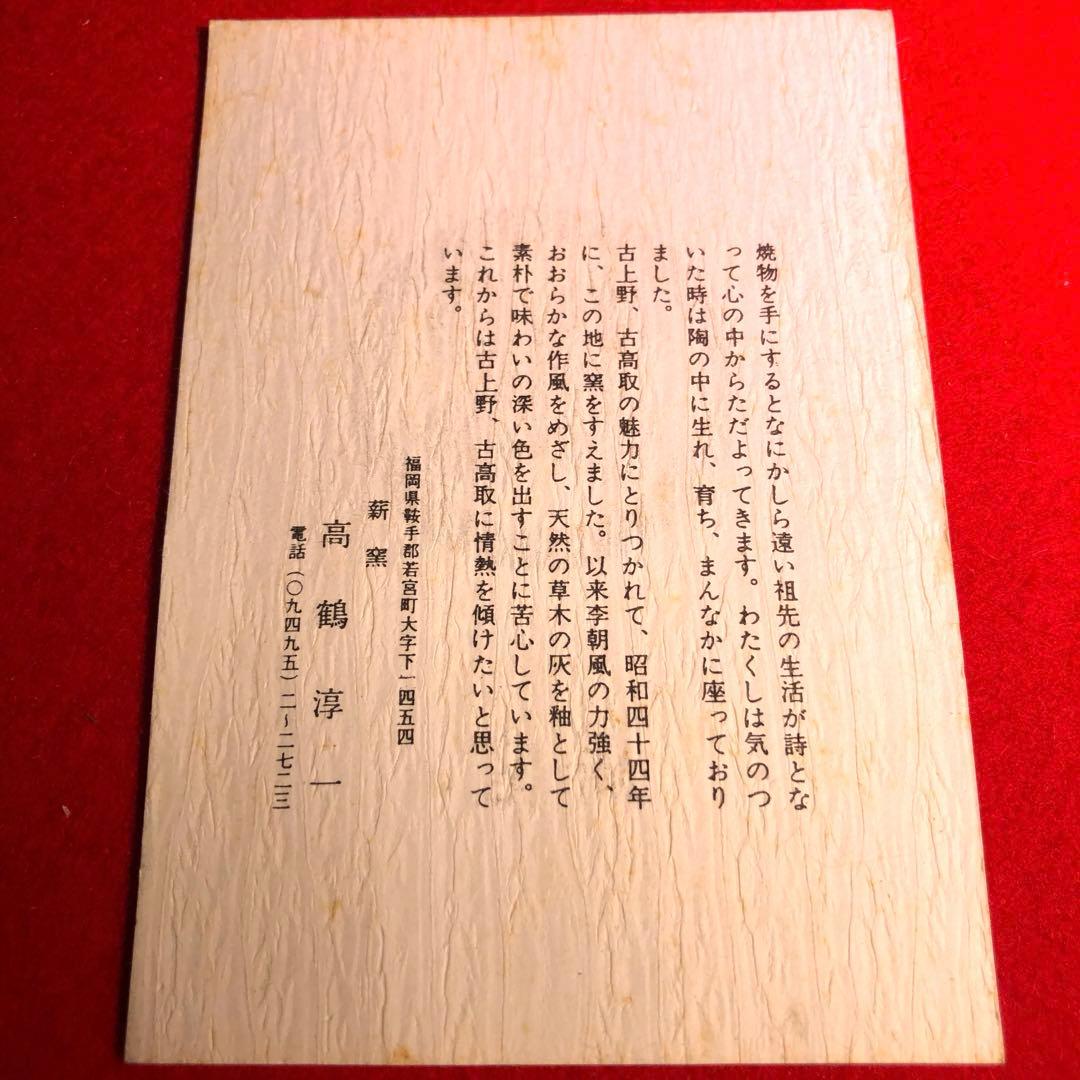 焼物を手にするとなにかしら遠い祖先の生活が詩とな
って心の中からただよってきます。わたくしは気のつ
いた時は陶の中に生れ、育ち、まんなかに座っており
ました。
古上野、古高取の魅力にとりつかれて、昭和四十四年
に、この地に窯をすえました。以来李朝風の力強く、
おおらかな作風をめざし、天然の草木の灰を釉として
素朴で味わいの深い色を出すことに苦心しています。
これからは古上野、古高取に情熱を傾けたいと思って
います。
福岡県鞍手郡若宮町大字下一四五四
薪窯
高鶴淳一
電話(〇九四九五)二〜二七二三